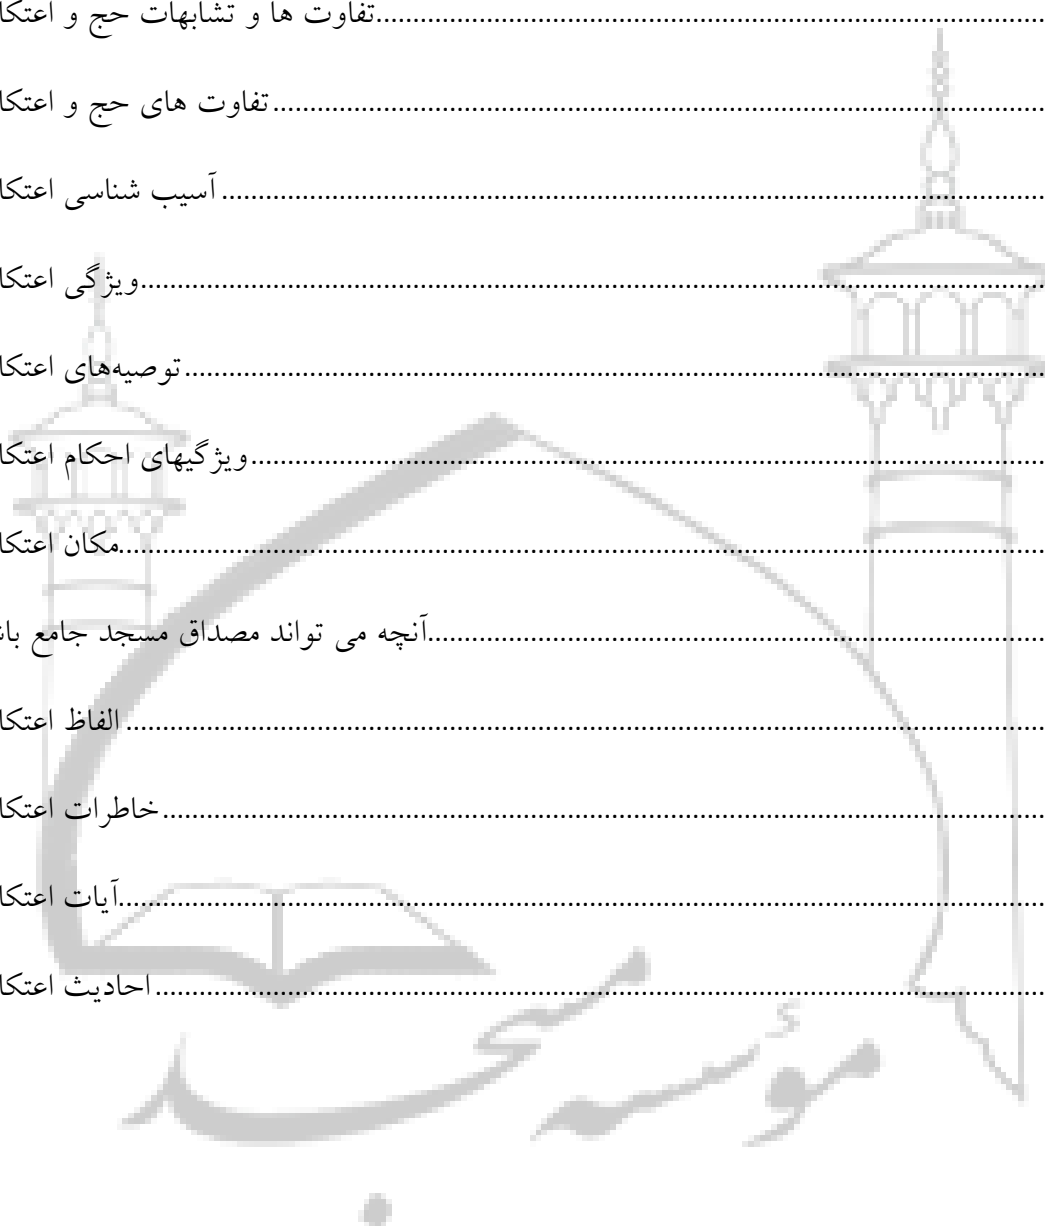 تفاوت ها و تشابهات حج و اعتکا
تفاوت های حج و اعتکا
آسیب شناسی اعتکا
ویژگی اعتکا
توصیه‌های اعتکا
ویژگیهای احکام اعتکا
مکان اعتکا
آنچه می تواند مصداق مسجد جامع باش
الفاظ اعتکا
خاطرات اعتکا
آیات اعتکا
احادیث اعتکا
مؤسسه مسجد